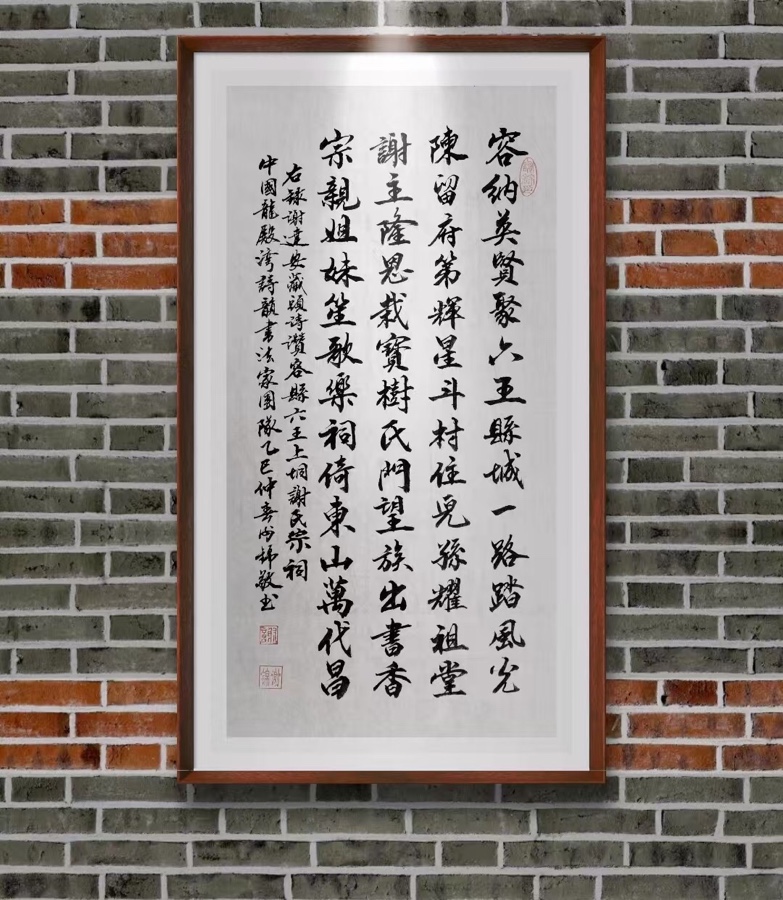 容納英賢聚六王縣城一路踏風光
陳留府第輝星斗村住兒孫耀祖堂
謝主隆恩栽寶樹氏門望族出書香
宗親姐妹笙歌樂祠倚東山萬代昌
右録謝達安藏頭詩讚容縣六王上垌謝氏宗祠
中國龍殿灣詩航書法家團隊乙巳仲春錦敬书